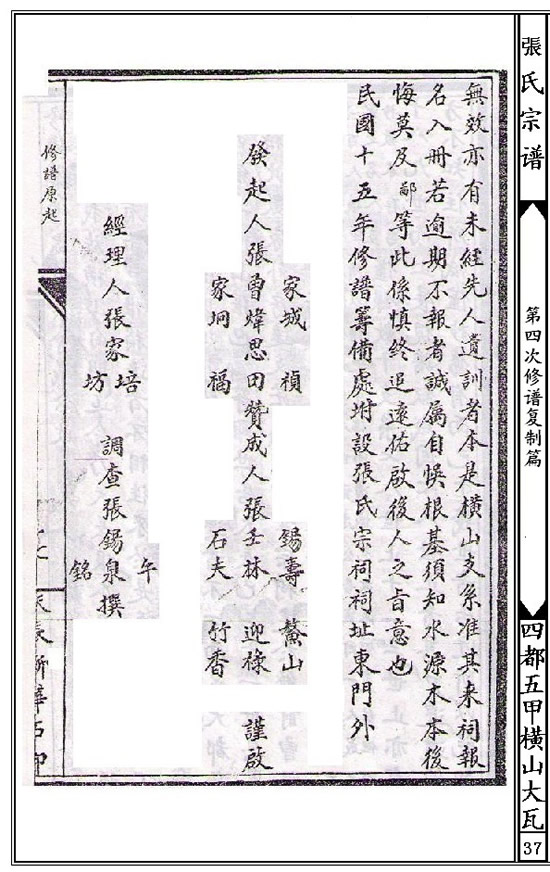 張氏宗谱
第四次修谱复制篇
四都五甲横山大瓦
37
無效亦有未經先人遺訓者本是橫山支系准其来祠報
名入冊若逾期不報者誠属自悞根基須知水源木本後
悔莫及鄙等此係慎終追遠佑啟後人之旨意也
民國十五年修譜籌備處坿設張氏宗祠祠址東門外
家城 禎 錫壽 鰲山
發起人張曾煒思田贊成人張壬林 迎祿 謹啟
家坰 福 石夫 竹香
經理人張家培 坊 調查張錫泉撰 午 銘
修譜原起